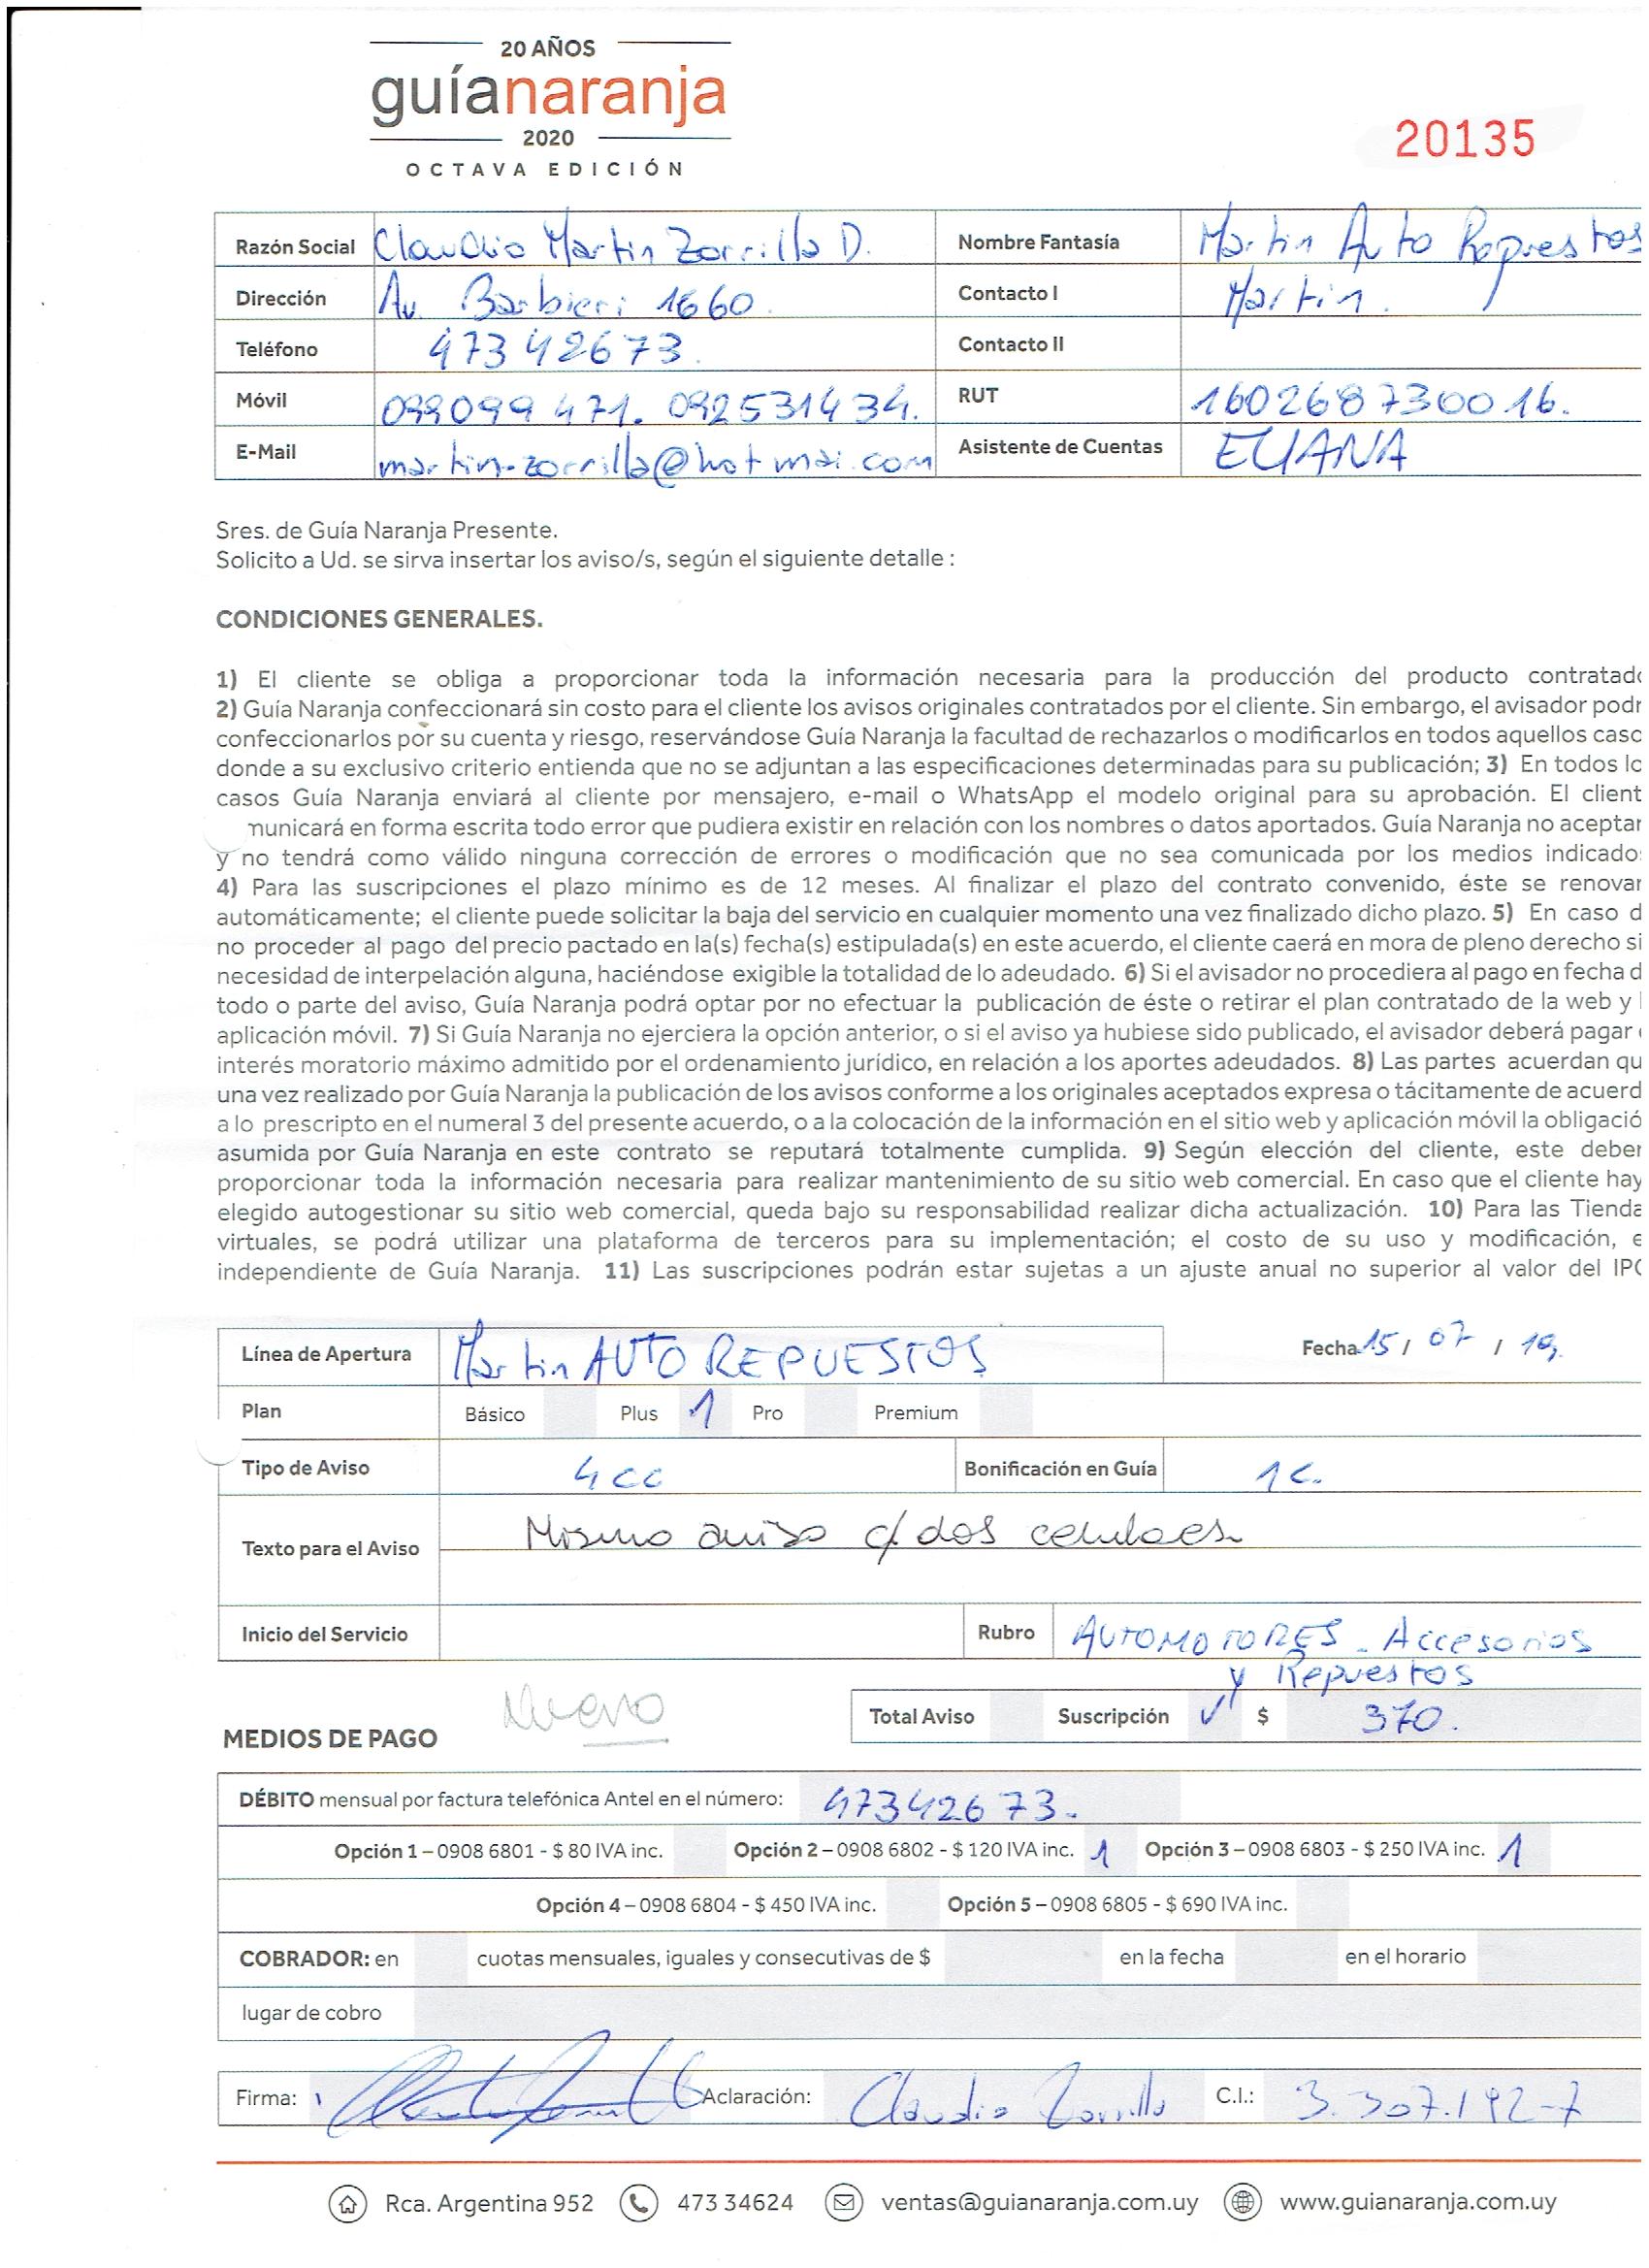 20 AÑOS
guíanaranja
2020
OCTAVA EDICIÓN
20135
Razón Social Claudio Martin Zorrilla D. Nombre Fantasía Martin Auto Repuestos
Dirección Av. Barbieri 1660. Contacto I Martin.
Teléfono 47342673. Contacto II
Móvil 099099471. 092531434. RUT 160268730016.
E-Mail martin-zorrilla@hotmai.com Asistente de Cuentas ELIANA
Sres. de Guía Naranja Presente.
Solicito a Ud. se sirva insertar los aviso/s, según el siguiente detalle :
CONDICIONES GENERALES.
1) El cliente se obliga a proporcionar toda la información necesaria para la producción del producto contratado
2) Guía Naranja confeccionará sin costo para el cliente los avisos originales contratados por el cliente. Sin embargo, el avisador podr
confeccionarlos por su cuenta y riesgo, reservándose Guía Naranja la facultad de rechazarlos o modificarlos en todos aquellos caso
donde a su exclusivo criterio entienda que no se adjuntan a las especificaciones determinadas para su publicación; 3) En todos lo
casos Guía Naranja enviará al cliente por mensajero, e-mail o WhatsApp el modelo original para su aprobación. El client
municará en forma escrita todo error que pudiera existir en relación con los nombres o datos aportados. Guía Naranja no aceptar
y no tendrá como válido ninguna corrección de errores o modificación que no sea comunicada por los medios indicado
4) Para las suscripciones el plazo mínimo es de 12 meses. Al finalizar el plazo del contrato convenido, éste se renovar
automáticamente; el cliente puede solicitar la baja del servicio en cualquier momento una vez finalizado dicho plazo. 5) En caso d
no proceder al pago del precio pactado en la(s) fecha(s) estipulada(s) en este acuerdo, el cliente caerá en mora de pleno derecho si
necesidad de interpelación alguna, haciéndose exigible la totalidad de lo adeudado. 6) Si el avisador no procediera al pago en fecha d
todo o parte del aviso, Guía Naranja podrá optar por no efectuar la publicación de éste o retirar el plan contratado de la web y l
aplicación móvil. 7) Si Guía Naranja no ejerciera la opción anterior, o si el aviso ya hubiese sido publicado, el avisador deberá pagar e
interés moratorio máximo admitido por el ordenamiento jurídico, en relación a los aportes adeudados. 8) Las partes acuerdan qu
una vez realizado por Guía Naranja la publicación de los avisos conforme a los originales aceptados expresa o tácitamente de acuerd
a lo prescripto en el numeral 3 del presente acuerdo, o a la colocación de la información en el sitio web y aplicación móvil la obligació
asumida por Guía Naranja en este contrato se reputará totalmente cumplida. 9) Según elección del cliente, este deber
proporcionar toda la información necesaria para realizar mantenimiento de su sitio web comercial. En caso que el cliente hay
elegido autogestionar su sitio web comercial, queda bajo su responsabilidad realizar dicha actualización. 10) Para las Tienda
virtuales, se podrá utilizar una plataforma de terceros para su implementación; el costo de su uso y modificación, e
independiente de Guía Naranja. 11) Las suscripciones podrán estar sujetas a un ajuste anual no superior al valor del IPC
Línea de Apertura Martin AUTO REPUESTOS Fecha 15 / 07 / 19.
Plan Básico Plus 1 Pro Premium
Tipo de Aviso 4 cc Bonificación en Guía 1 c.
Texto para el Aviso Mismo aviso c/ dos celulaes
Inicio del Servicio Rubro AUTOMOTORES - Accesorios
y Repuestos
Nuevo
Total Aviso Suscripción ✓ $ 370.
MEDIOS DE PAGO
DÉBITO mensual por factura telefónica Antel en el número: 47342673.
Opción 1 – 0908 6801 - $ 80 IVA inc. Opción 2 – 0908 6802 - $ 120 IVA inc. 1 Opción 3 – 0908 6803 - $ 250 IVA inc. 1
Opción 4 – 0908 6804 - $ 450 IVA inc. Opción 5 – 0908 6805 - $ 690 IVA inc.
COBRADOR: en cuotas mensuales, iguales y consecutivas de $ en la fecha en el horario
lugar de cobro
Firma: Aclaración: Claudio Zorrilla C.I.: 3.307.192-7
Rca. Argentina 952 473 34624 ventas@guianaranja.com.uy www.guianaranja.com.uy